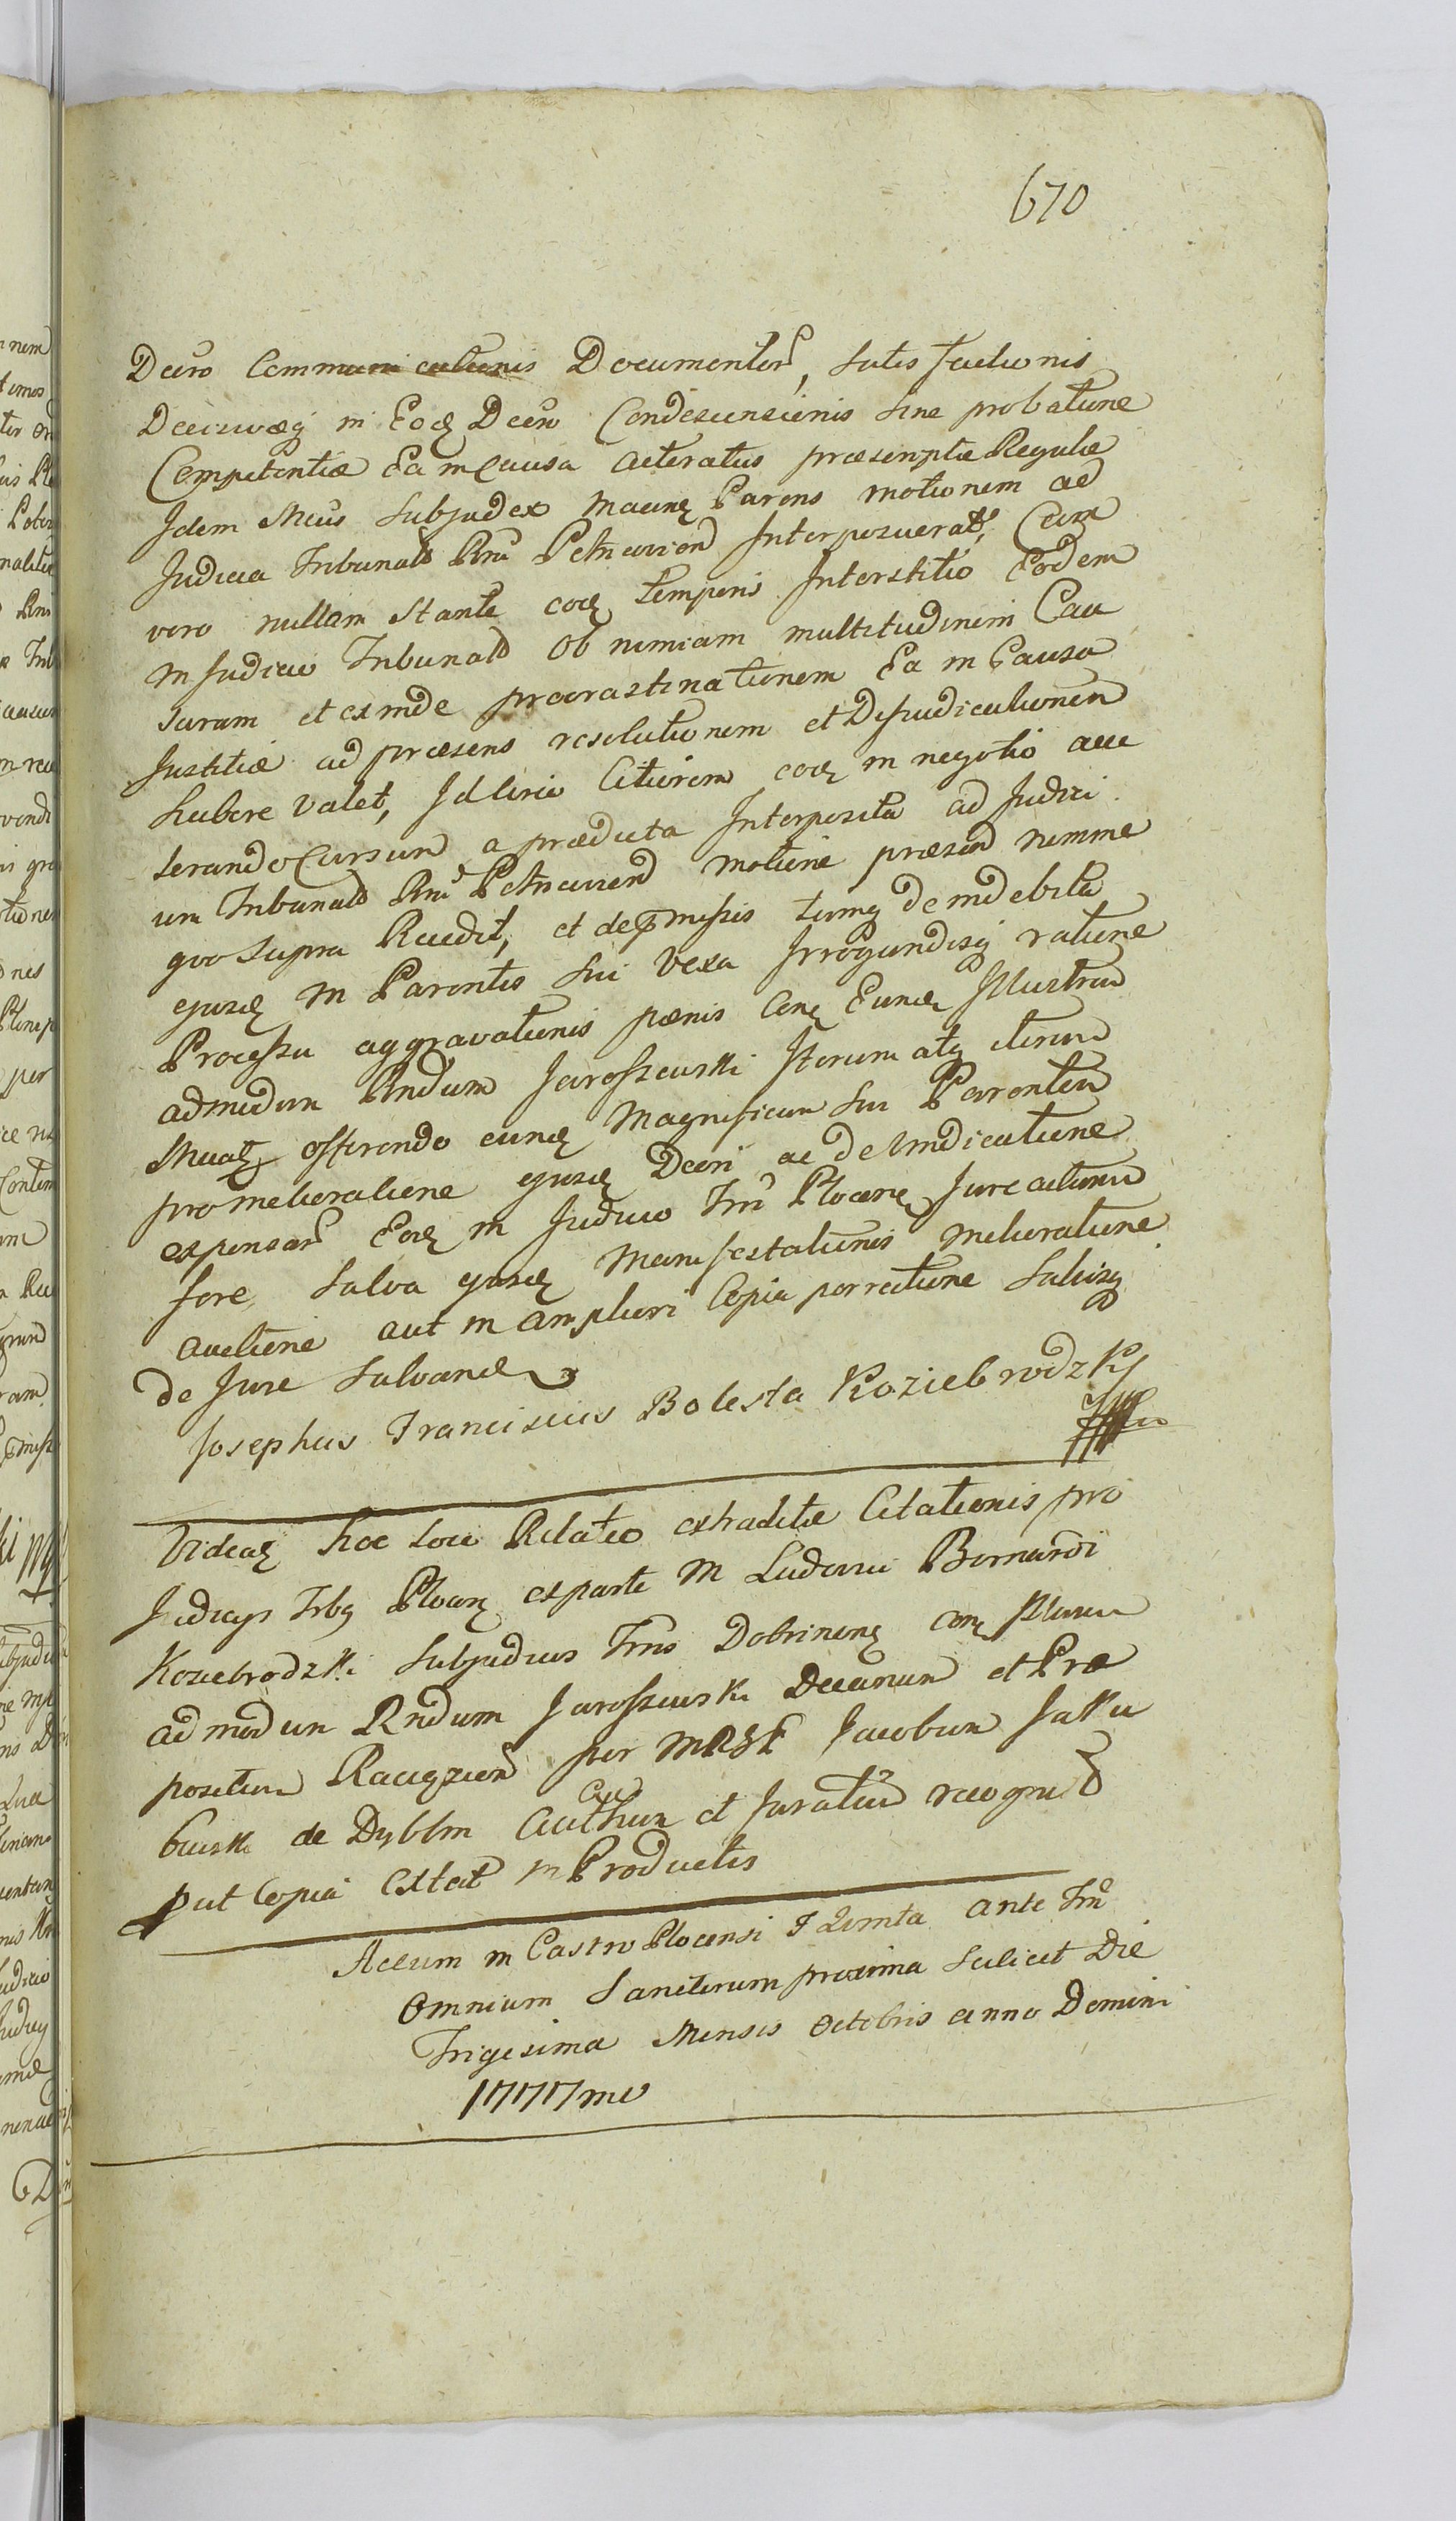 670
Decro Communicationis Documentor, Satis factionis
Decisivaeq in Eod Decro Condescensionis Sine probatione
Competentiae Ea in Causa acteratus praescriptae Regulae
Idem Mcus Subjudex Macinz Parens motionem ad
Judicia Tribunald Rni Petricovien Interposuerat, Cum
vero nullam Stante eod temporis Interstitio Eodem
in Judicio Tribunald Ob nimiam multitudinem Cau
sarum et exinde procrastinationem Ea in Causa
Justitiae ad praesens resolutionem et Dijudicationem
habere valet, Id circo Citiorem eod in negotio acce
lerando Cursum a praedicta Interposita ad Judici
um Tribunald Rni Petricovien motione praesen nomine
quo Supra Recedit, et de pmissis tamq de indebita
ejusd M Parentis Sui Vexa Irrogandisq ratione
Processu aggravationis paenis Conz Eund Illustrem
admodum Rndum Jaroszewski Iterum atq iterum
offerendo eund Magnificum Sui Parentem
pro melioratione ejusd Decri ac de Vindicatione
expensar Eod in Judicio Trri Plocenz Jure acturum
fore, Salva ejusd Manifestationis melioratione
auctione aut in ampliori Copia porrectione Salvisq
de Jure Salvand
Josephus Franciscus Bolesta Koziebrodzki
Videas hoc loco Relatio extraditae Citationis pro
Judicys Trbz Plocenz ex parte M Ludovici Bernardi
Koziebrodzki Subjudicis Trris Dobrinenz conz Illurem
admodum Rndum Jaroszewski Decanum et Prae
positum Raciązien per Jacobum Jaku
bowski de Dyblin Authen et Juratum recognit
put Copia Extat in Productis
Actum in Castro Plocensi F Quinta ante Fm
Omnium Sanctorum proxima Scilicet Die
Trigesima Mensis Octobris anno Domini
1777mo